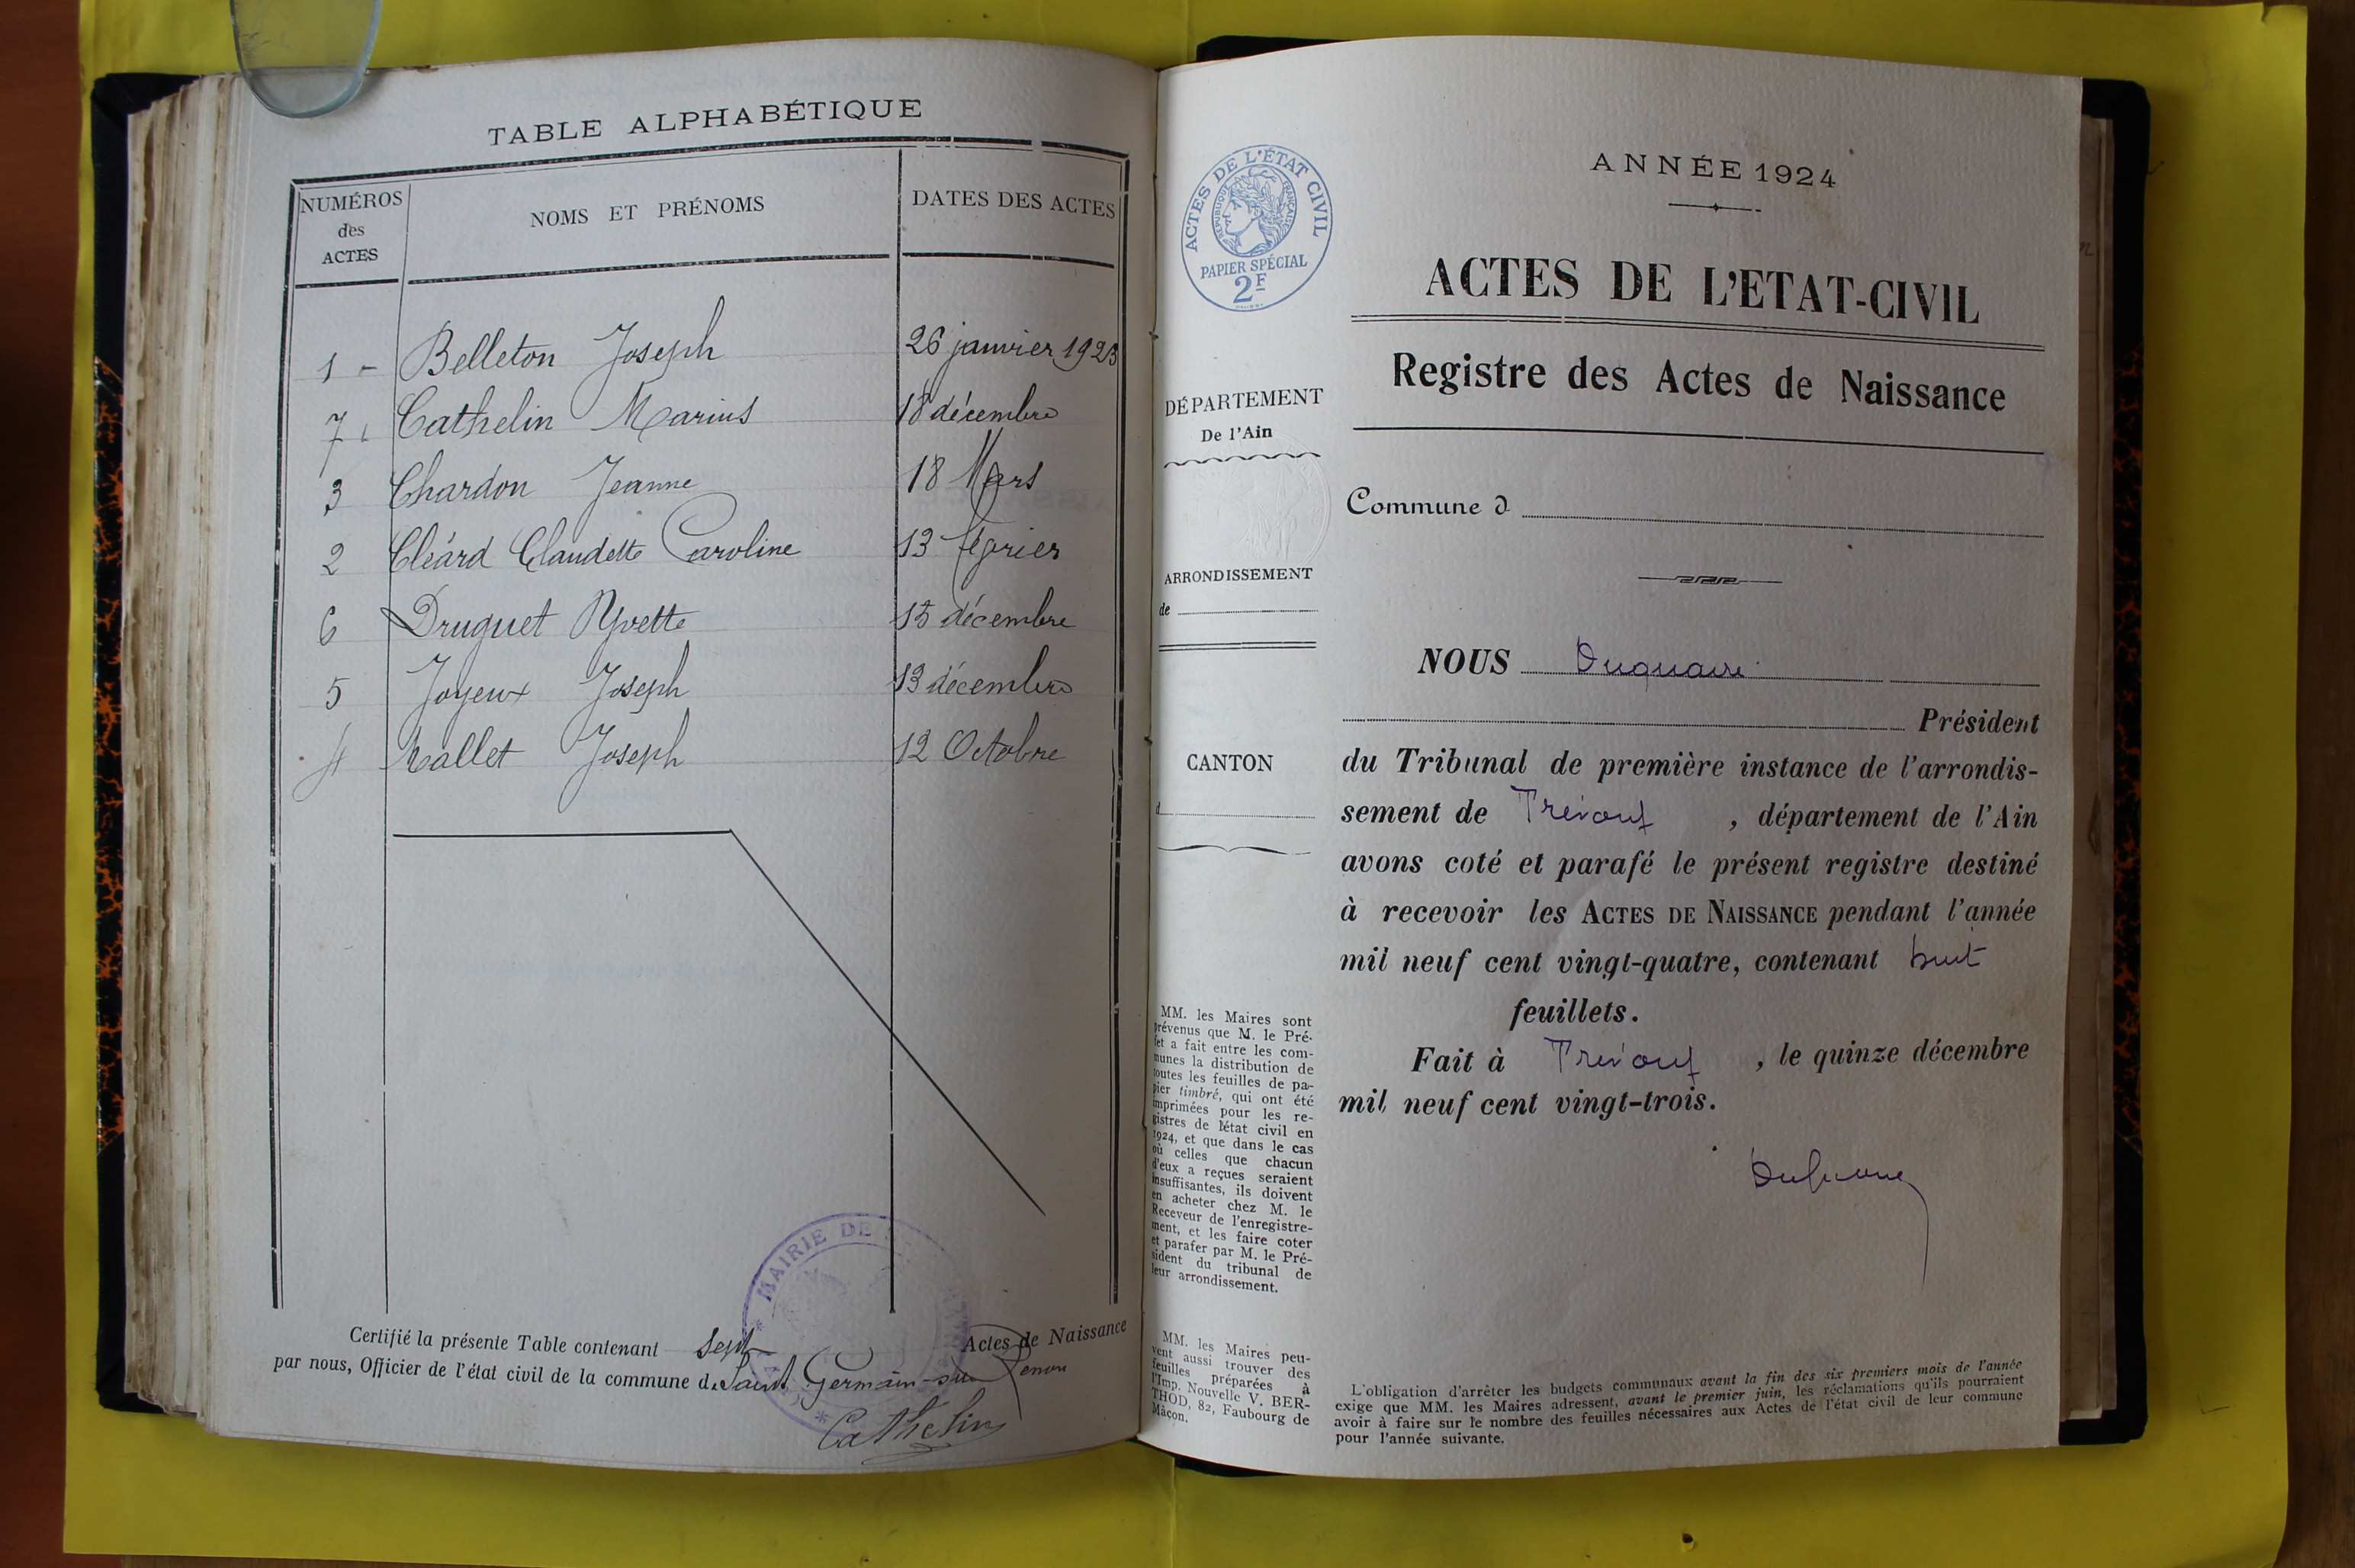 TABLE ALPHABÉTIQUE
NUMÉROS des ACTES
NOMS ET PRÉNOMS
DATES DES ACTES
1 - Belleton Joseph 26 janvier 1923
7 Cathelin Marius 18 décembre
3 Chardon Jeanne 18 Mars
2 Cléard Claudette Caroline 13 février
6 Druguet Yvette 15 décembre
5 Joyeux Joseph 13 décembre
4 Mallet Joseph 12 Octobre
Certifié la présente Table contenant sept Actes de Naissance
par nous, Officier de l'état civil de la commune de Saint Germain-sur Renon
MAIRIE DE
Cathelin
ACTES DE L'ÉTAT CIVIL
RÉPUBLIQUE FRANÇAISE
PAPIER SPÉCIAL
2F
DÉPARTEMENT
De l'Ain
ARRONDISSEMENT
de
CANTON
d
MM. les Maires sont
prévenus que M. le Pré-
fet a fait entre les com-
munes la distribution de
toutes les feuilles de pa-
pier timbré, qui ont été
imprimées pour les re-
gistres de l'état civil en
1924, et que dans le cas
où celles que chacun
d'eux a reçues seraient
insuffisantes, ils doivent
en acheter chez M. le
Receveur de l'enregistre-
ment, et les faire coter
et parafer par M. le Pré-
sident du tribunal de
leur arrondissement.
MM. les Maires peu-
vent aussi trouver des
feuilles préparées à
l'Imp. Nouvelle V. BER-
THOD, 82, Faubourg de
Mâcon.
ANNÉE 1924
ACTES DE L'ETAT-CIVIL
Registre des Actes de Naissance
Commune d
NOUS Duquaire
Président
du Tribunal de première instance de l'arrondis-
sement de Trévoux , département de l'Ain
avons coté et parafé le présent registre destiné
à recevoir les ACTES DE NAISSANCE pendant l'année
mil neuf cent vingt-quatre, contenant huit
feuillets.
Fait à Trévoux , le quinze décembre
mil neuf cent vingt-trois.
L'obligation d'arrêter les budgets communaux avant la fin des six premiers mois de l'année
exige que MM. les Maires adressent, avant le premier juin, les réclamations qu'ils pourraient
avoir à faire sur le nombre des feuilles nécessaires aux Actes de l'état civil de leur commune
pour l'année suivante.